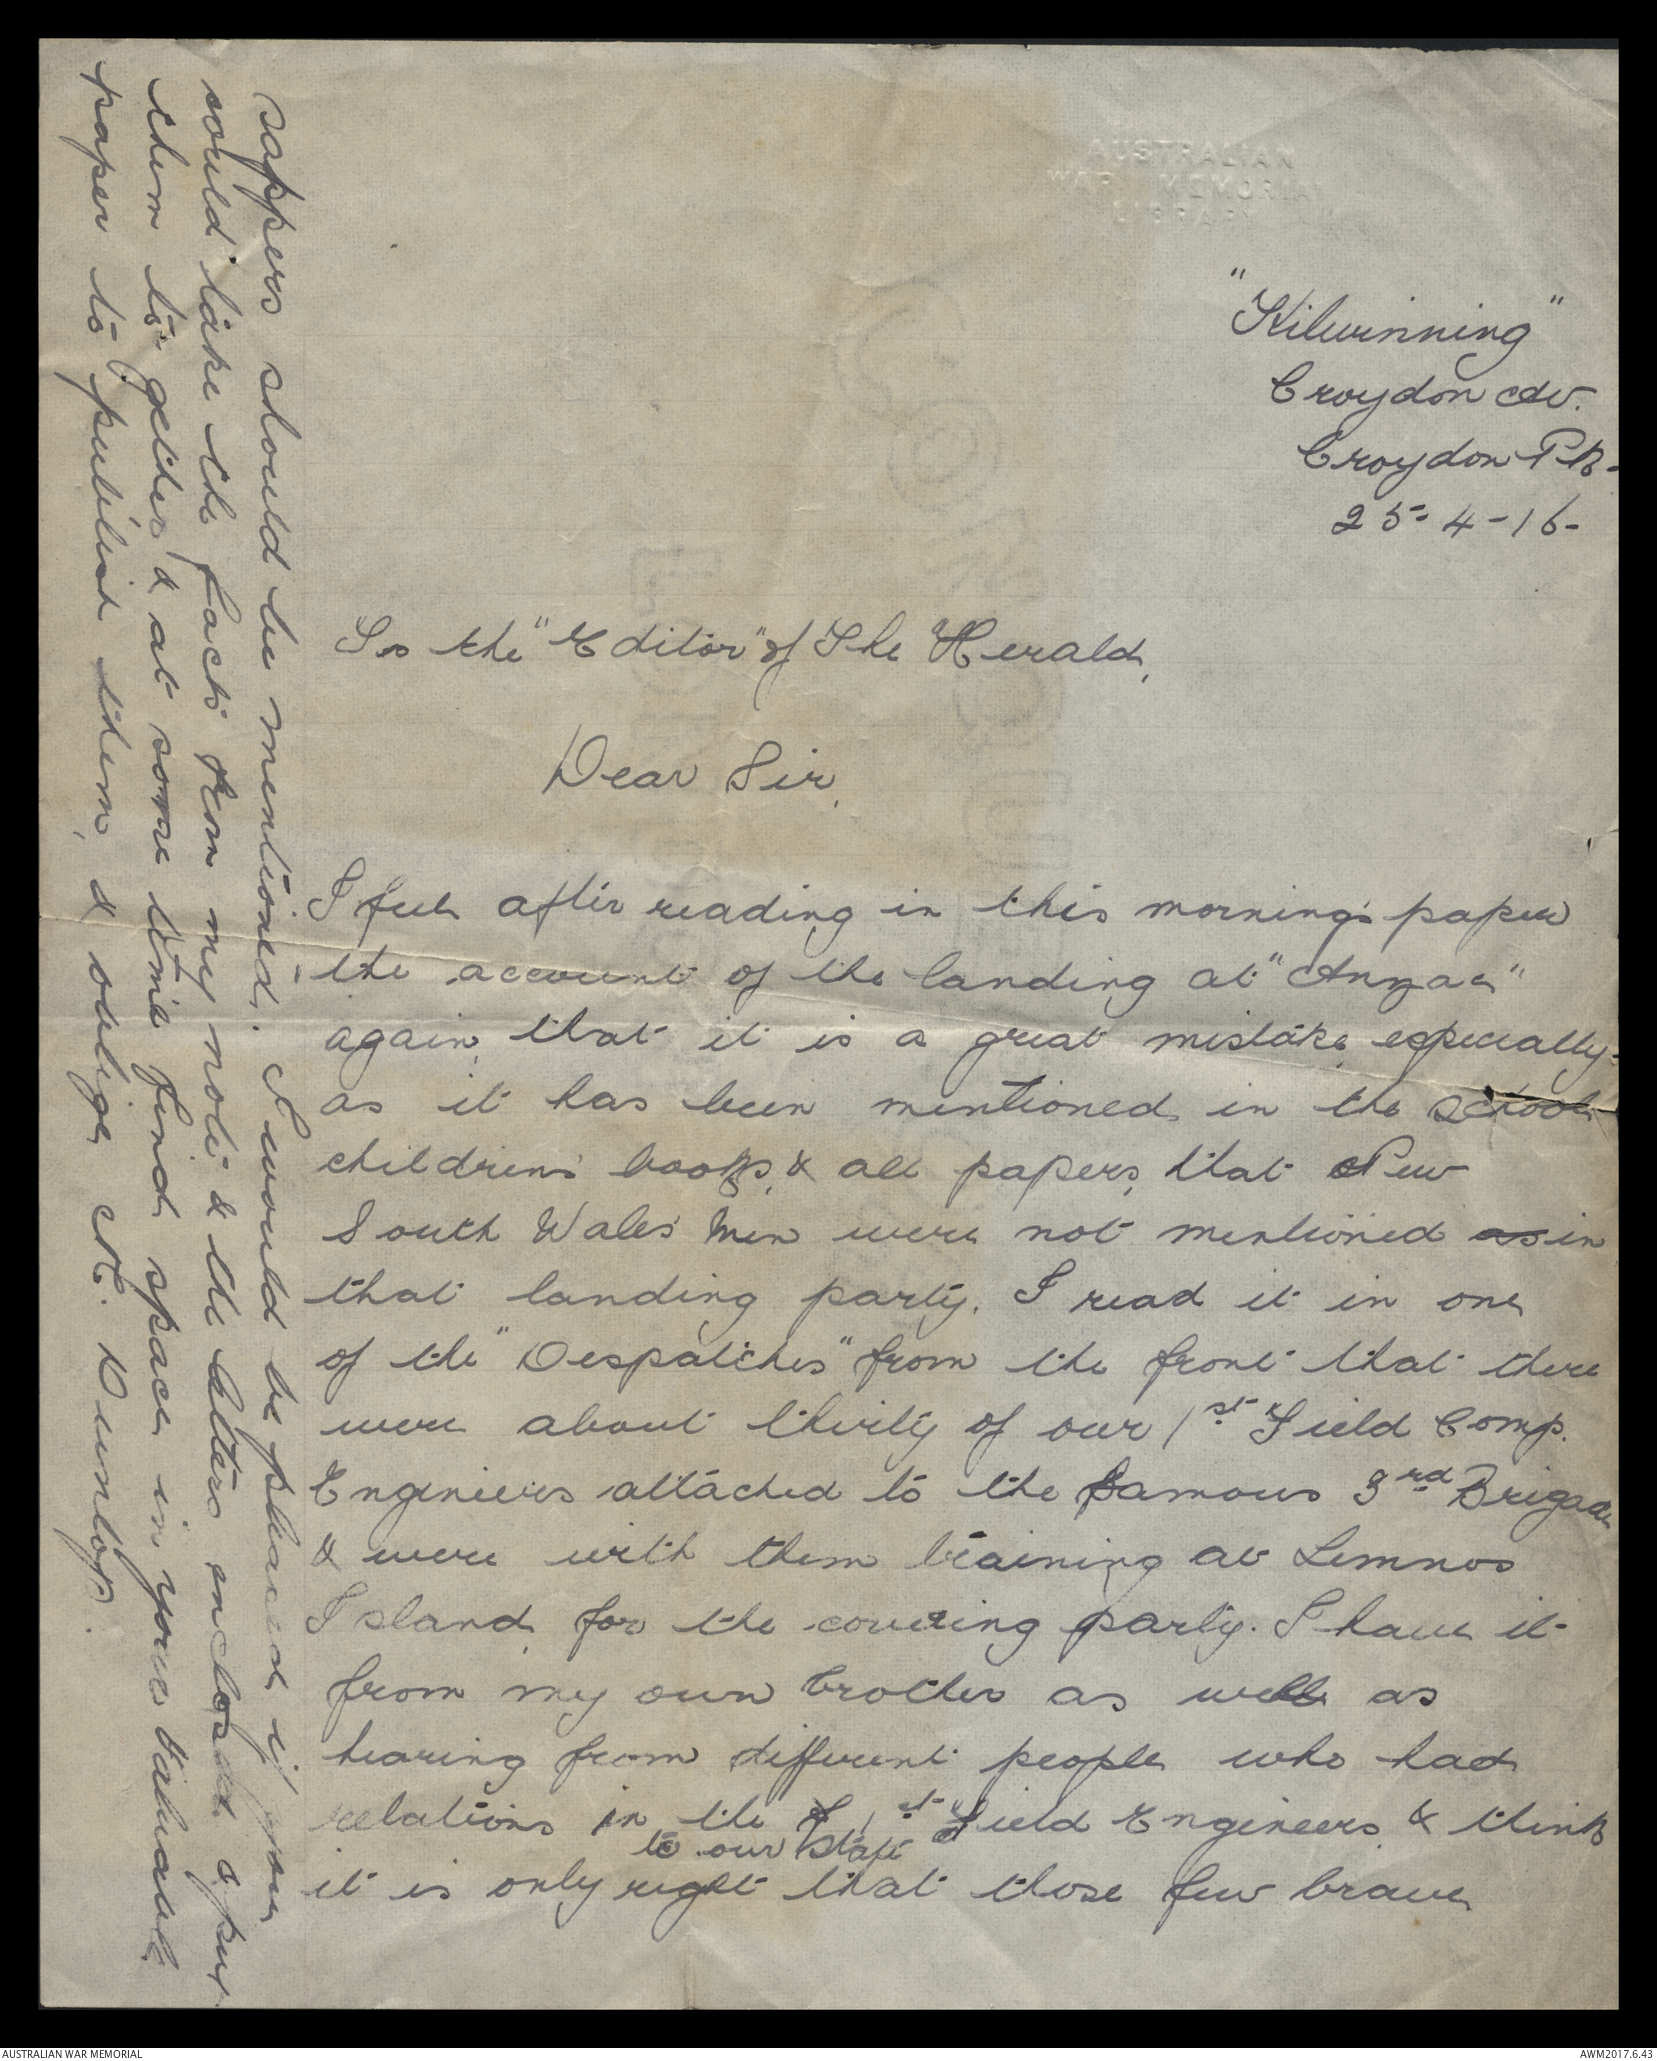 AUSTRALIAN
WAR MEMORIAL
LIBRARY
"Kilwinning"
Croydon Av.
Croydon Pk-
25-4-16-
To the "Editor" of The Herald,
Dear Sir,
I feel after reading in this morning's paper
the account of the landing at "Anzac"
again, that it is a great mistake, especially-
as it has been mentioned in the school
childrens' books, & all papers, that New
South Wales' Men were not mentioned as in
that landing party. I read it in one
of the "Despatches" from the front that there
were about thirty of our 1st Field Comp.
Engineers attached to the famous 3rd Brigade
& were with them training at Lemnos
Island, for the covering party. I have it
from my own brother as well as
hearing from different people who had
relations in the 1st Field Engineers, & think
to our State
it is only right that those few brave
sappers should be mentioned. I would be pleased if you
would take the facts from my note & the letters enclosed & put
them together & at some time find space in your valuable
paper to publish them, & oblige A. Dunlop.
AUSTRALIAN WAR MEMORIAL
AWM2017.6.43